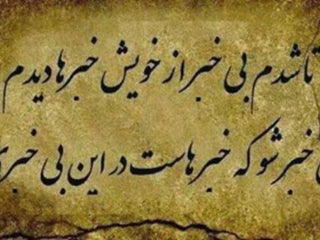 تا شدم بی خبر از خویش خبرها دیدم
بی خبر شو که خبرهاست در این بی خبری